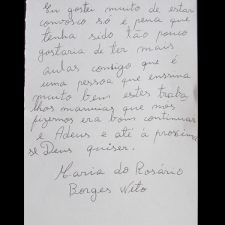 Eu gostei muito de estar
convosco só é pena que
tenha sido tão pouco
gostaria de ter mais
aulas consigo que é
uma pessoa que ensina
muito bem estes traba
lhos manuais que nós
fizemos era bom continuar
e Adeus e até à próxima
se Deus quiser.
Maria do Rosário
Borges